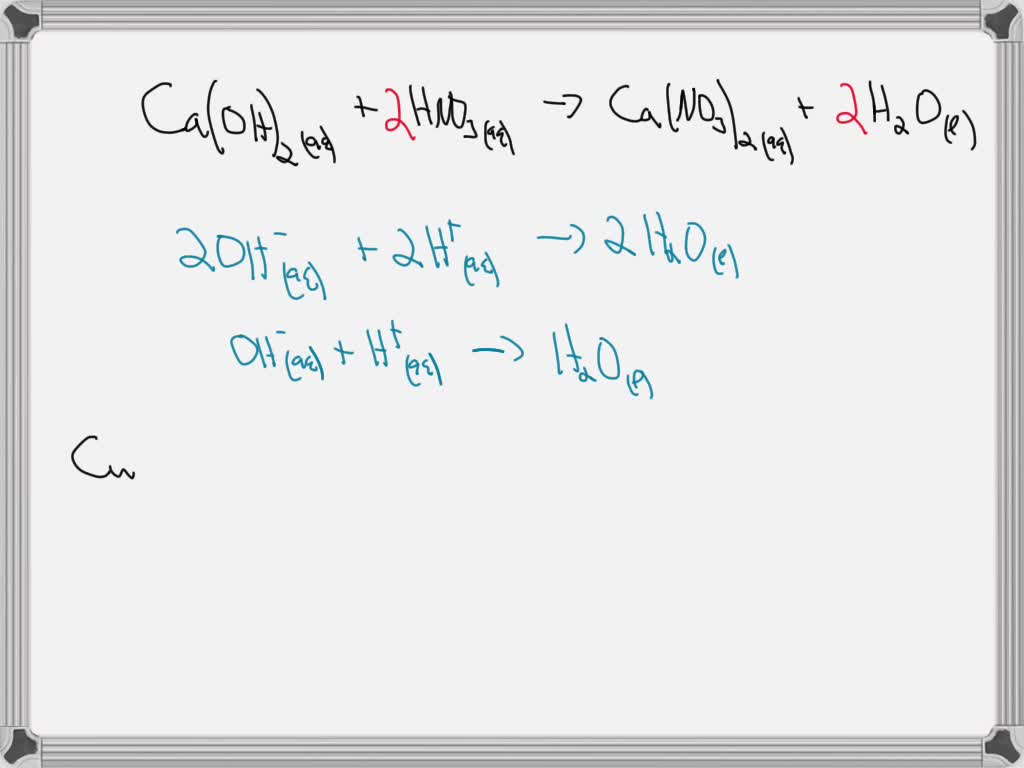 Ca(OH)₂(aq) + 2HNO₃(aq) → Ca(NO₃)₂(aq) + 2H₂O(l)
2OH⁻(aq) + 2H⁺(aq) → 2H₂O(l)
OH⁻(aq) + H⁺(aq) → H₂O(l)
Cu